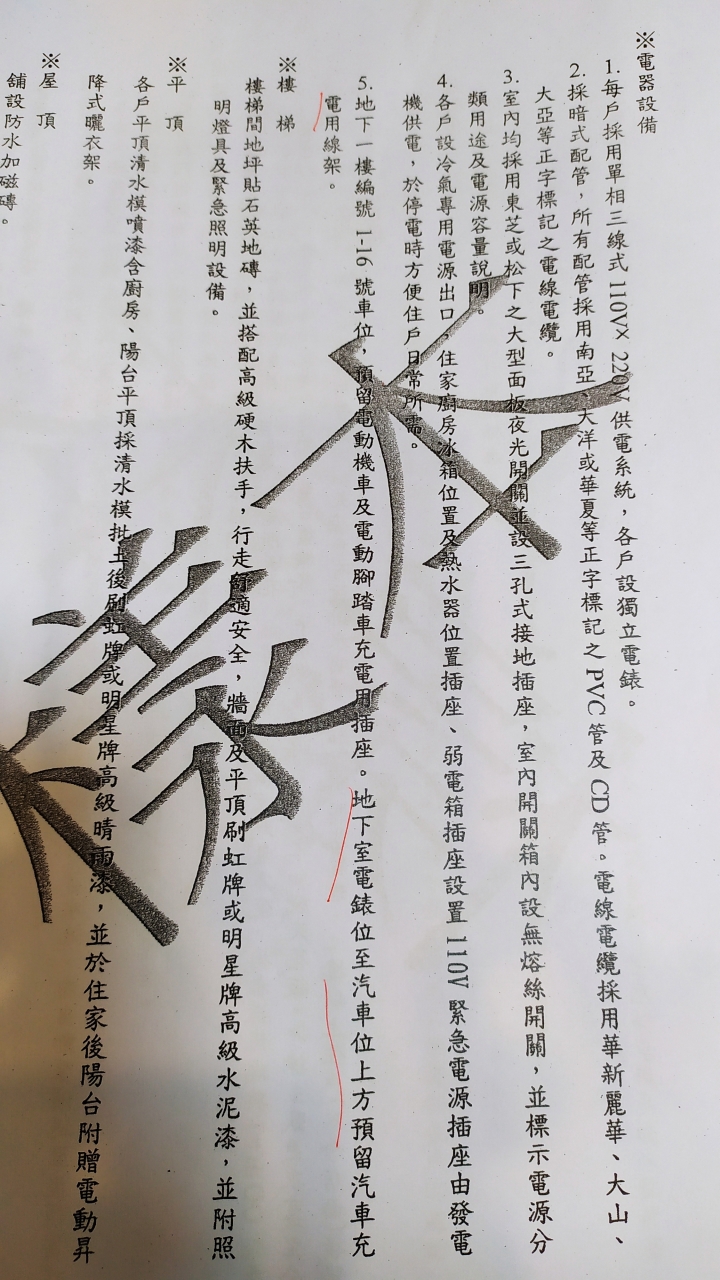 ※電器設備
1.每戶採用單相三線式 110V× 220V 供電系統，各戶設獨立電錶。
2.採暗式配管，所有配管採用南亞、大洋或華夏等正字標記之 PVC 管及 CD 管。電線電纜採用華新麗華、大山、
大亞等正字標記之電線電纜。
3.室內均採用東芝或松下之大型面板夜光開關並設三孔式接地插座，室內開關箱內設無熔絲開關，並標示電源分
類用途及電源容量說明。
4.各戶設冷氣專用電源出口，住家廚房冰箱位置及熱水器位置插座、弱電箱插座設置 110V 緊急電源插座由發電
機供電，於停電時方便住戶日常所需。
5.地下一樓編號 1-16 號車位，預留電動機車及電動腳踏車充電用插座。地下室電錶位至汽車位上方預留汽車充
電用線架。
※樓 梯
樓梯間地坪貼石英地磚，並搭配高級硬木扶手，行走舒適安全，牆面及平頂刷虹牌或明星牌高級水泥漆，並附照
明燈具及緊急照明設備。
※平 頂
各戶平頂清水模噴漆含廚房、陽台平頂採清水模批土後刷虹牌或明星牌高級晴雨漆，並於住家後陽台附贈電動昇
降式曬衣架。
※屋 頂
舖設防水加磁磚。